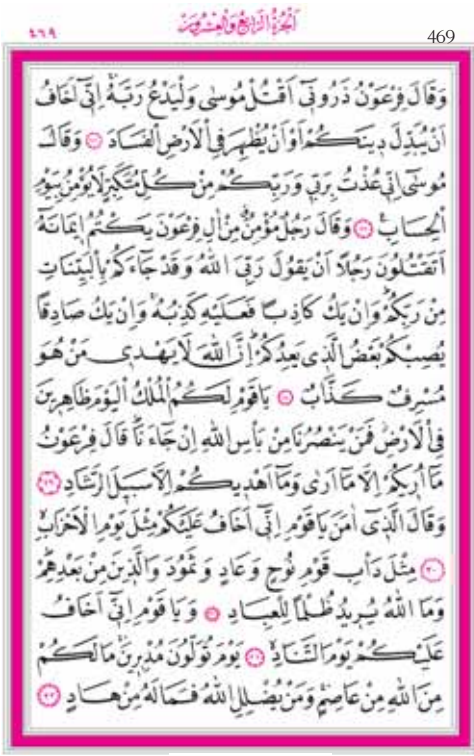 ٤٦٩
اَلْجُزْءُ الرَّابِعُ وَالْعِشْرُونَ
469
وَقَالَ فِرْعَوْنُ ذَرُونِٓى اَقْتُلْ مُوسٰى وَلْيَدْعُ رَبَّهُ اِنِّٓى اَخَافُ
اَنْ يُبَدِّلَ دِينَكُمْ اَوْ اَنْ يُظْهِرَ فِى الْاَرْضِ الْفَسَادَ ﴿٢٦﴾ وَقَالَ
مُوسٰٓى اِنِّى عُذْتُ بِرَبِّى وَرَبِّكُمْ مِنْ كُلِّ مُتَكَبِّرٍ لَا يُؤْمِنُ بِيَوْمِ
الْحِسَابِ ﴿٢٧﴾ وَقَالَ رَجُلٌ مُؤْمِنٌ مِنْ اٰلِ فِرْعَوْنَ يَكْتُمُ اِيمَانَهُٓ
اَتَقْتُلُونَ رَجُلًا اَنْ يَقُولَ رَبِّىَ اللّٰهُ وَقَدْ جَٓاءَكُمْ بِالْبَيِّنَاتِ
مِنْ رَبِّكُمْ وَاِنْ يَكُ كَاذِبًا فَعَلَيْهِ كَذِبُهُ وَاِنْ يَكُ صَادِقًا
يُصِبْكُمْ بَعْضُ الَّذِى يَعِدُكُمْ اِنَّ اللّٰهَ لَا يَهْدِى مَنْ هُوَ
مُسْرِفٌ كَذَّابٌ ﴿٢٨﴾ يَا قَوْمِ لَكُمُ الْمُلْكُ الْيَوْمَ ظَاهِرِينَ
فِى الْاَرْضِ فَمَنْ يَنْصُرُنَا مِنْ بَأْسِ اللّٰهِ اِنْ جَٓاءَنَا قَالَ فِرْعَوْنُ
مَٓا اُرِيكُمْ اِلَّا مَٓا اَرٰى وَمَٓا اَهْدِيكُمْ اِلَّا سَبِيلَ الرَّشَادِ ﴿٢٩﴾
وَقَالَ الَّذِٓى اٰمَنَ يَا قَوْمِ اِنِّٓى اَخَافُ عَلَيْكُمْ مِثْلَ يَوْمِ الْاَحْزَابِ
﴿٣٠﴾ مِثْلَ دَأْبِ قَوْمِ نُوحٍ وَعَادٍ وَثَمُودَ وَالَّذِينَ مِنْ بَعْدِهِمْ
وَمَا اللّٰهُ يُرِيدُ ظُلْمًا لِلْعِبَادِ ﴿٣١﴾ وَيَا قَوْمِ اِنِّٓى اَخَافُ
عَلَيْكُمْ يَوْمَ التَّنَادِ ﴿٣٢﴾ يَوْمَ تُوَلُّونَ مُدْبِرِينَ مَا لَكُمْ
مِنَ اللّٰهِ مِنْ عَاصِمٍ وَمَنْ يُضْلِلِ اللّٰهُ فَمَا لَهُ مِنْ هَادٍ ﴿٣٣﴾